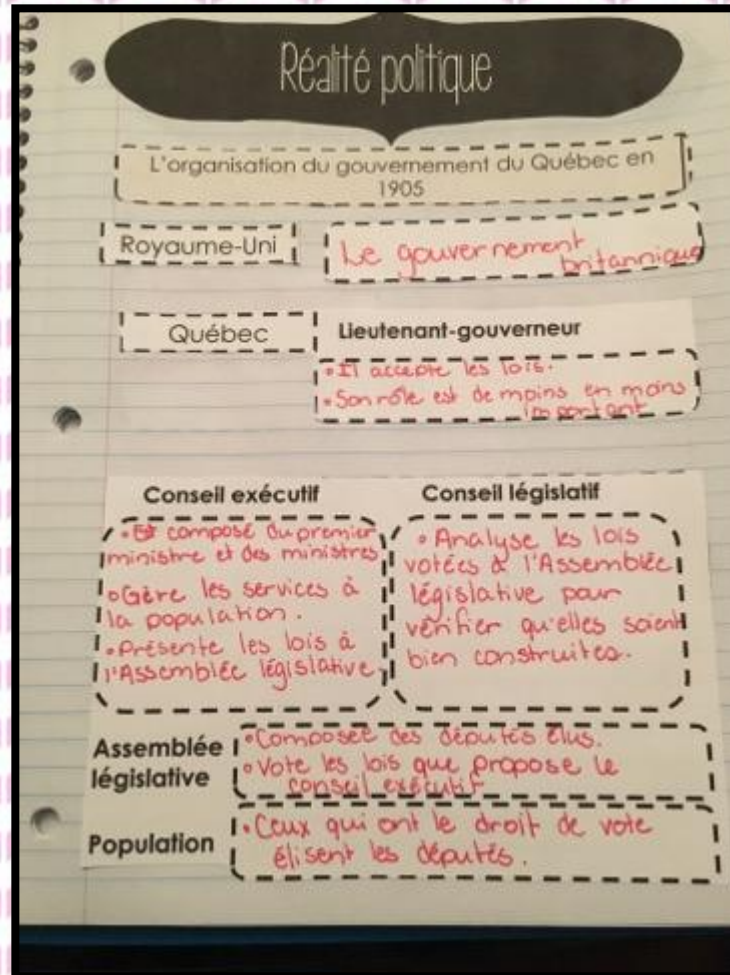 Réalité politique
L'organisation du gouvernement du Québec en
1905
Royaume-Uni
Le gouvernement
britannique
Québec
Lieutenant-gouverneur
• Il accepte les lois.
• Son rôle est de moins en moins
important
Conseil exécutif
• Est composé du premier
ministre et des ministres
• Gère les services à
la population.
• Présente les lois à
l'Assemblée législative
Conseil législatif
• Analyse les lois
votées à l'Assemblée
législative pour
vérifier qu'elles soient
bien construites.
Assemblée
législative
• Composée des députés élus.
• Vote les lois que propose le
conseil exécutif
Population
• Ceux qui ont le droit de vote
élisent les députés.